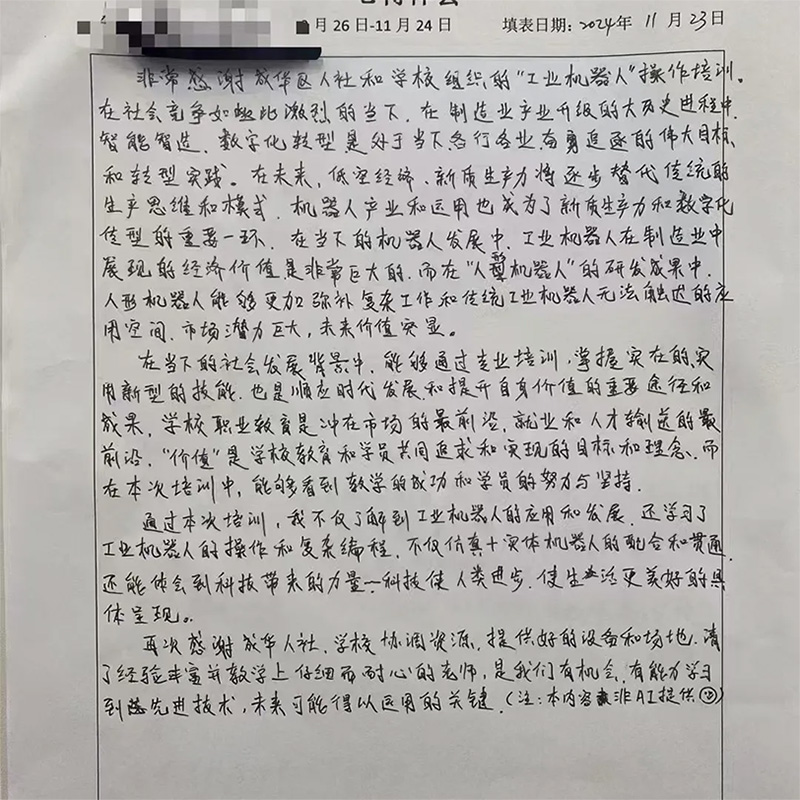 月26日-11月24日 填表日期：2024年11月23日
非常感谢成华区人社和学校组织的“工业机器人”操作培训。
在社会竞争如此激烈的当下，在制造业产业升级的大历史进程中，
智能智造、数字化转型是处于当下各行各业奋勇追逐的伟大目标、
和转型实践。在未来，低空经济、新质生产力将逐步替代传统的
生产思维和模式，机器人产业和运用也成为了新质生产力和数字化
转型的重要一环，在当下的机器人发展中，工业机器人在制造业中
展现的经济价值是非常巨大的，而在“人型机器人”的研发成果中，
人形机器人能够更加弥补复杂工作和传统工业机器人无法触达的应
用空间，市场潜力巨大，未来价值突显。
在当下的社会发展背景中，能够通过专业培训，掌握实在的、实
用新型的技能，也是顺应时代发展和提升自身价值的重要途径和
成果，学校职业教育是冲在市场的最前沿，就业和人才输送的最
前沿，“价值”是学校教育和学员共同追求和实现的目标和理念，而
在本次培训中，能够看到教学的成功和学员的努力与坚持。
通过本次培训，我不仅了解到工业机器人的应用和发展，还学习了
工业机器人的操作和复杂编程，不仅仿真+实体机器人的配合和贯通，
还能体会到科技带来的力量—科技使人类进步，使生活更美好的具
体呈现。
再次感谢成华人社、学校协调资源，提供好的设备和场地，请
了经验丰富并教学上仔细而耐心的老师，是我们有机会、有能力学习
到先进技术，未来可能得以运用的关键。（注：本内容非AI提供）